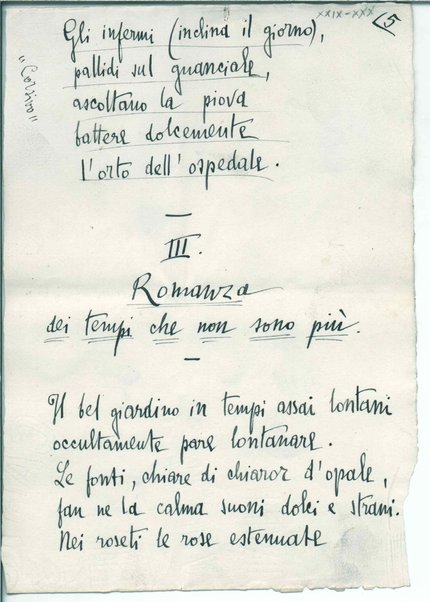 XXIX-XXX
5
"Corsivo"
Gli infermi (inclina il giorno),
pallidi sul guanciale,
ascoltano la piova
battere dolcemente
l'orto dell'ospedale.
—
III.
Romanza
dei tempi che non sono più.
—
Il bel giardino in tempi assai lontani
occultamente pare lontanare.
Le fonti, chiare di chiaror d'opale,
fan ne la calma suoni dolci e strani.
Nei roseti le rose estenuate